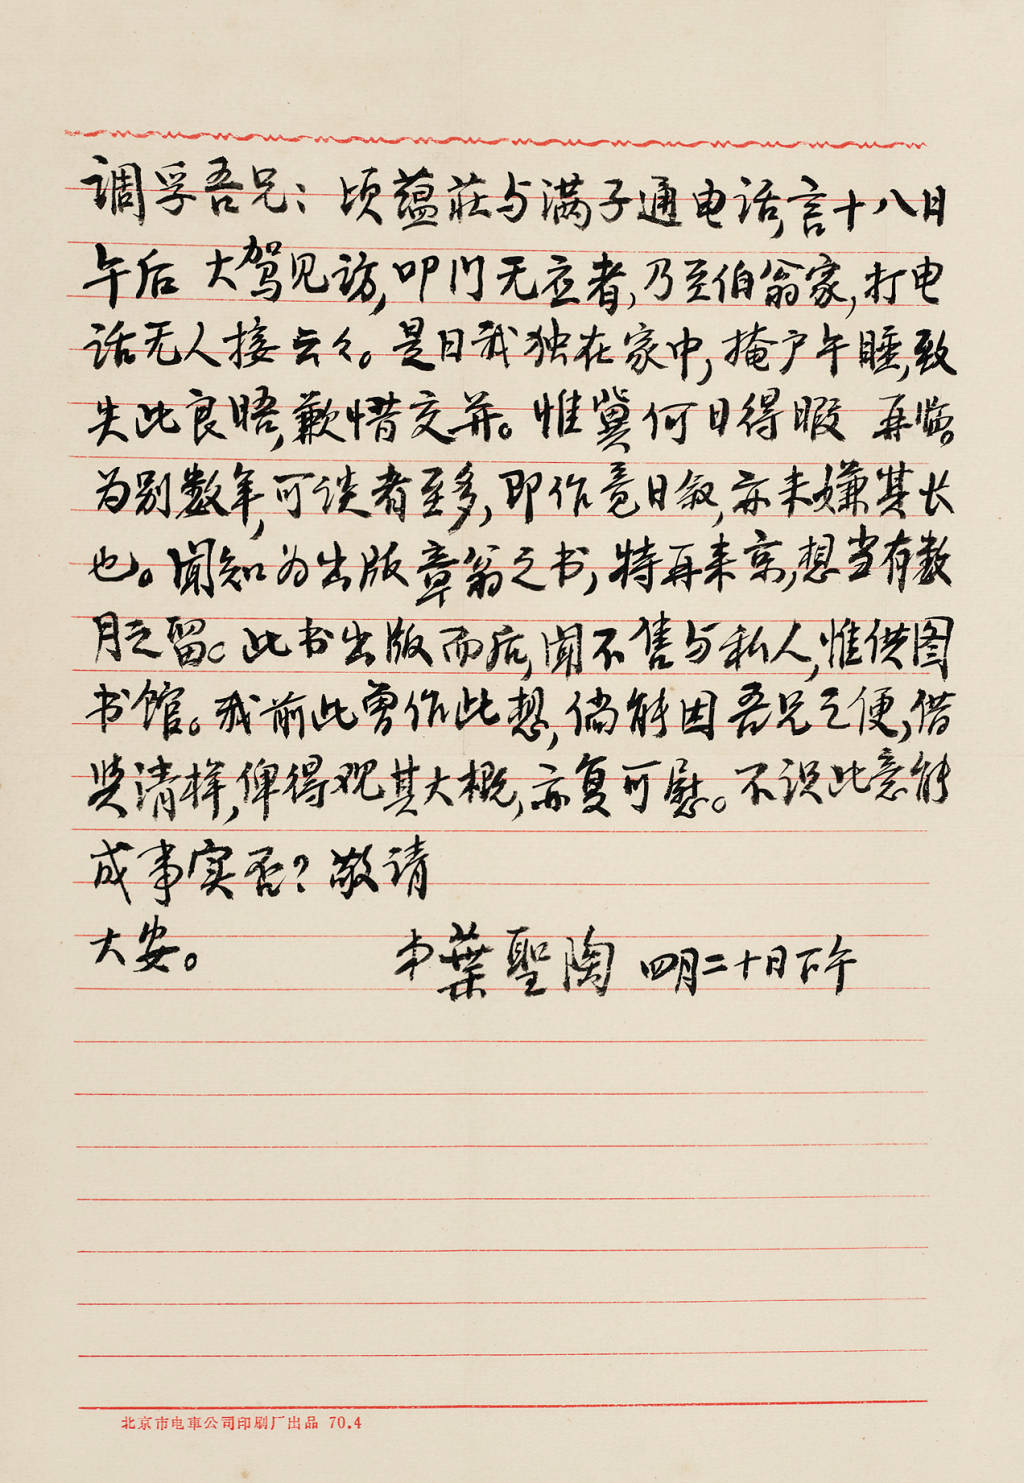 调孚吾兄：顷蕴莊与满子通电话，言十八日
午后 大驾见访，叩门无应者，乃至伯翁家，打电
话无人接云々。是日我独在家中，掩户午睡，致
失此良晤，歉惜交并。惟冀何日得暇 再临。
为别数年，可谈者至多，即作竟日叙，亦未嫌其长
也。闻知为出版章翁之书，特再来京，想当有数
月之留。此书出版而后，闻不售与私人，惟供图
书馆。我前此曾作此想，倘能因吾兄之便，借
与清样，俾得观其大概，亦复可慰。不识此意能
成事实否？敬请
大安。 弟葉聖陶 四月二十日下午
北京市电車公司印刷厂出品 70.4